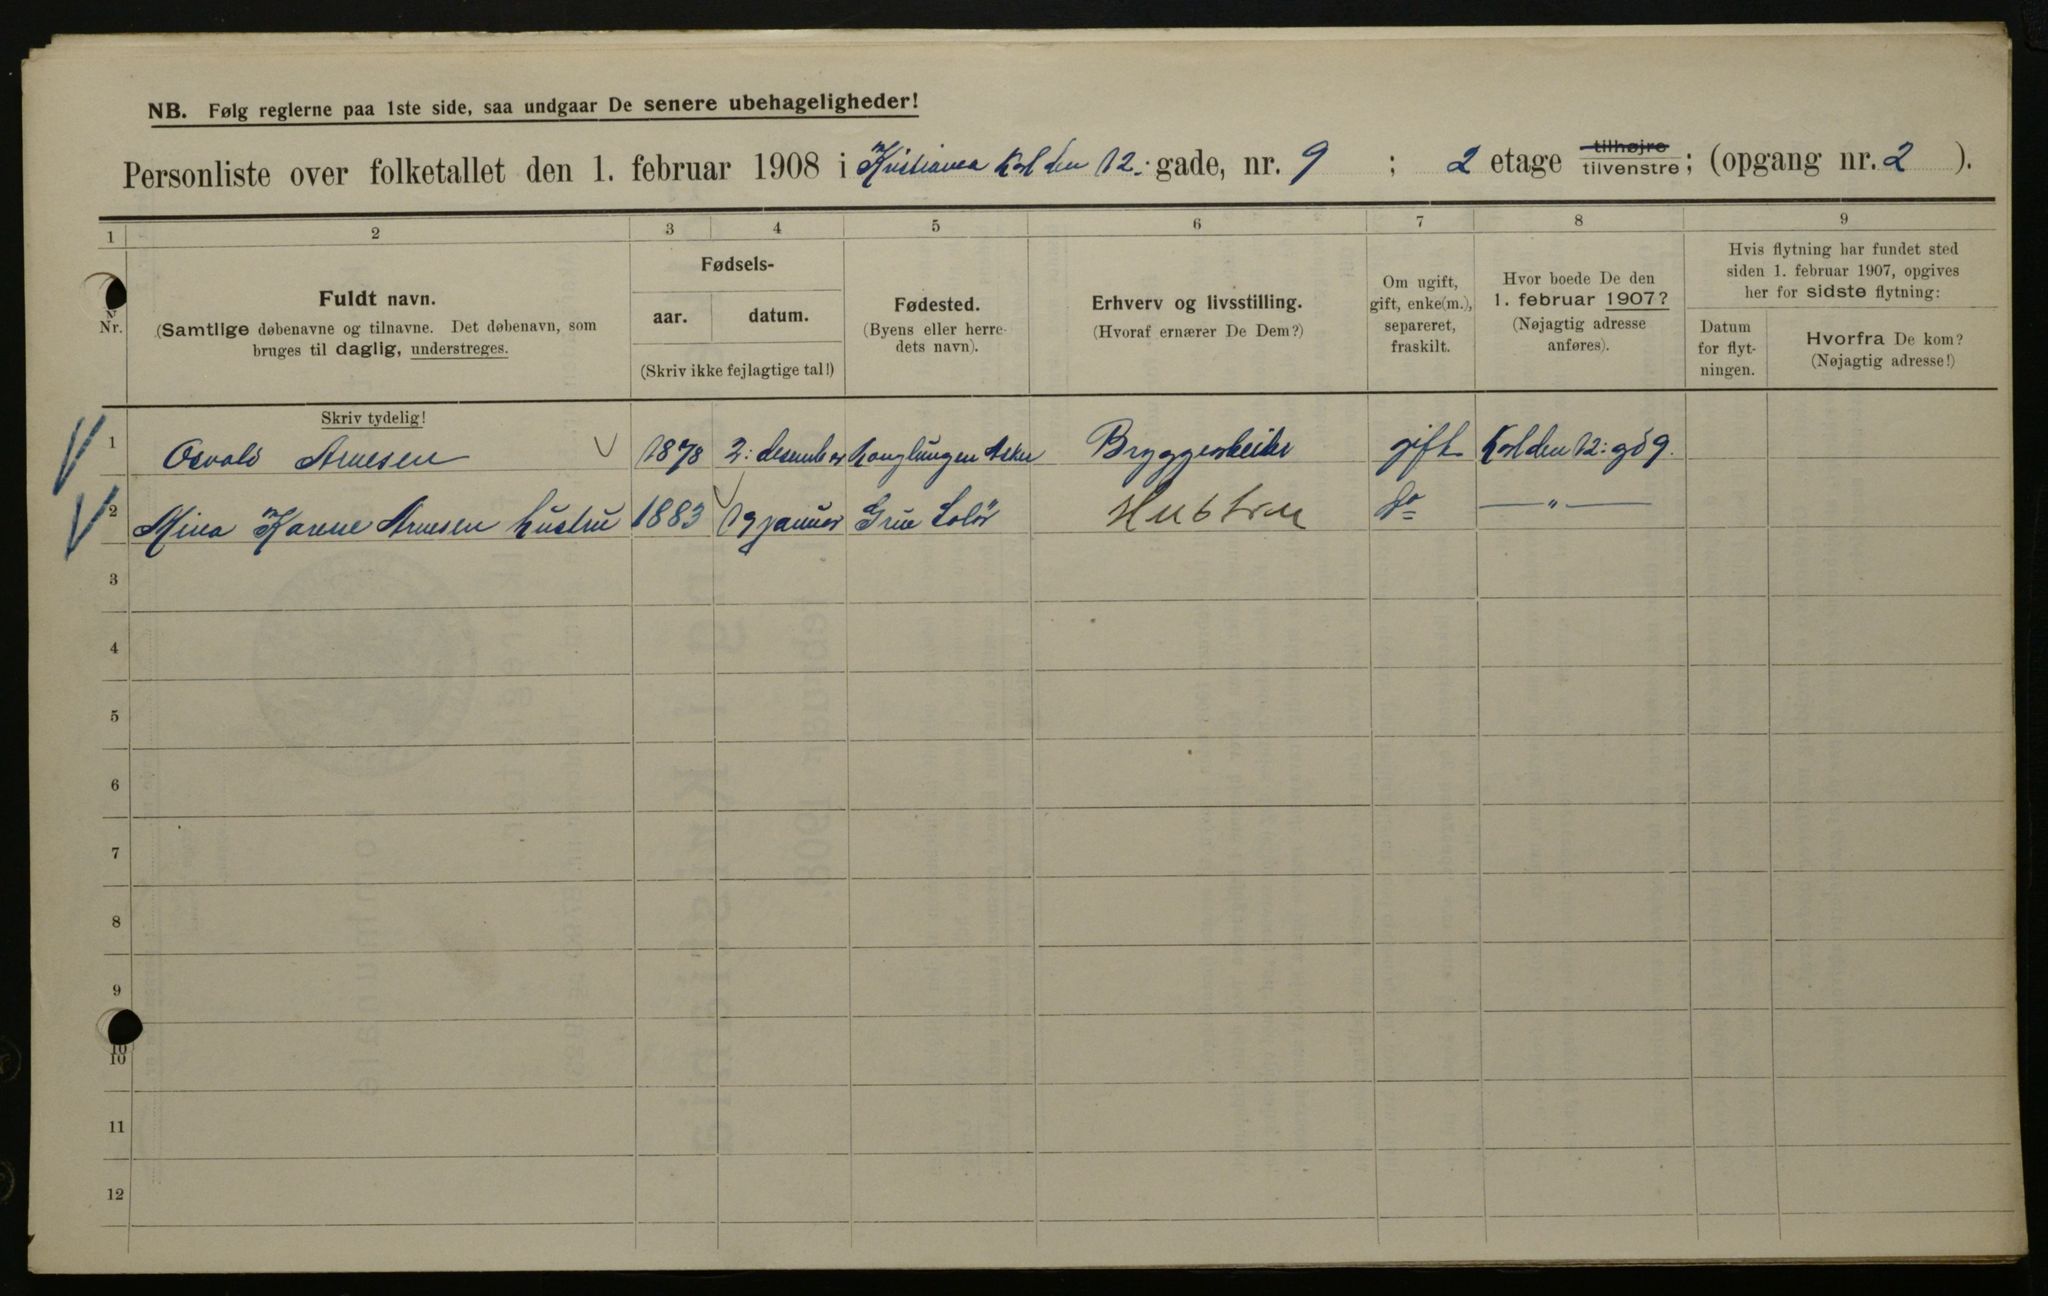 NB. Følg reglerne paa 1ste side, saa undgaar De senere ubehageligheder!
Personliste over folketallet den 1. februar 1908 i Kristiania Karl den 12: gade, nr. 9 ; 2 etage tilhøjre tilvenstre; (opgang nr. 2 ).
1 2 3 4 5 6 7 8 9
Nr.
Fuldt navn.
(Samtlige døbenavne og tilnavne. Det døbenavn, som
bruges til daglig, understreges.
Fødsels-
aar. datum.
(Skriv ikke fejlagtige tal!)
Fødested.
(Byens eller herre-
dets navn).
Erhverv og livsstilling.
(Hvoraf ernærer De Dem?)
Om ugift,
gift, enke(m.),
separeret,
fraskilt.
Hvor boede De den
1. februar 1907?
(Nøjagtig adresse
anføres).
Hvis flytning har fundet sted
siden 1. februar 1907, opgives
her for sidste flytning:
Datum
for flyt-
ningen.
Hvorfra De kom?
(Nøjagtig adresse!)
Skriv tydelig!
1 Osvald Arnesen 1878 2: desember Konglungen Asker Bryggearbeider gift Karl den 12: gd 9.
2 Mina Karene Arnesen hustru 1883 19 januar Grue Solør Hustru do — " —
3
4
5
6
7
8
9
10
10
11
12